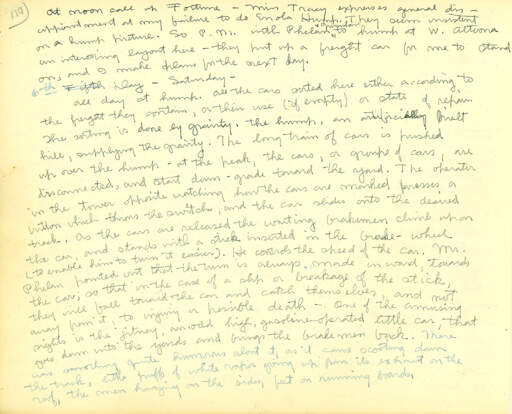 119
At noon call up Fortune - Miss Tracy expresses general dis-
appointment at my failure to do Enola Hump. They seem insistent
on a hump picture. So P.M. with Phelan to hump at W. Altoona
an interesting layout here - they put up a freight car for me to stand
on, and I make plans for the next day.
6th Day - Saturday -
All day at hump. All the cars sorted here either according to
the freight they contain, or their use (if empty) or state of repair.
The sorting is done by gravity. The hump, an artificially built
hill, supplying the gravity. The long train of cars is pushed
up over the hump - at the peak, the cars, or groups of cars, are
disconnected, and start down-grade toward the yard. The operator
in the tower opposite watching how the cars are marked presses a
button which throws the switch, and the car slides onto the desired
track. As the cars are released the waiting brakemen climb up on
the car, and stands with a stick inserted in the brake-wheel
(to enable him to turn it easier). He controls the speed of the car. Mr.
Phelan pointed out that the turn is always made inward, towards
the car, so that in the case of a slip or breakage of the stick,
they will fall toward the car and catch themselves, and not
away from it, to injury or possible death - One of the amusing
sights is the jitney, an odd high, gasoline-operated little car, that
goes down into the yards and brings the brakemen back. There
was something quite humorous about it, as it came scooting down
the track, little puffs of white vapor going up from its exhaust on the
roof, the men hanging on the sides, feet on running boards,